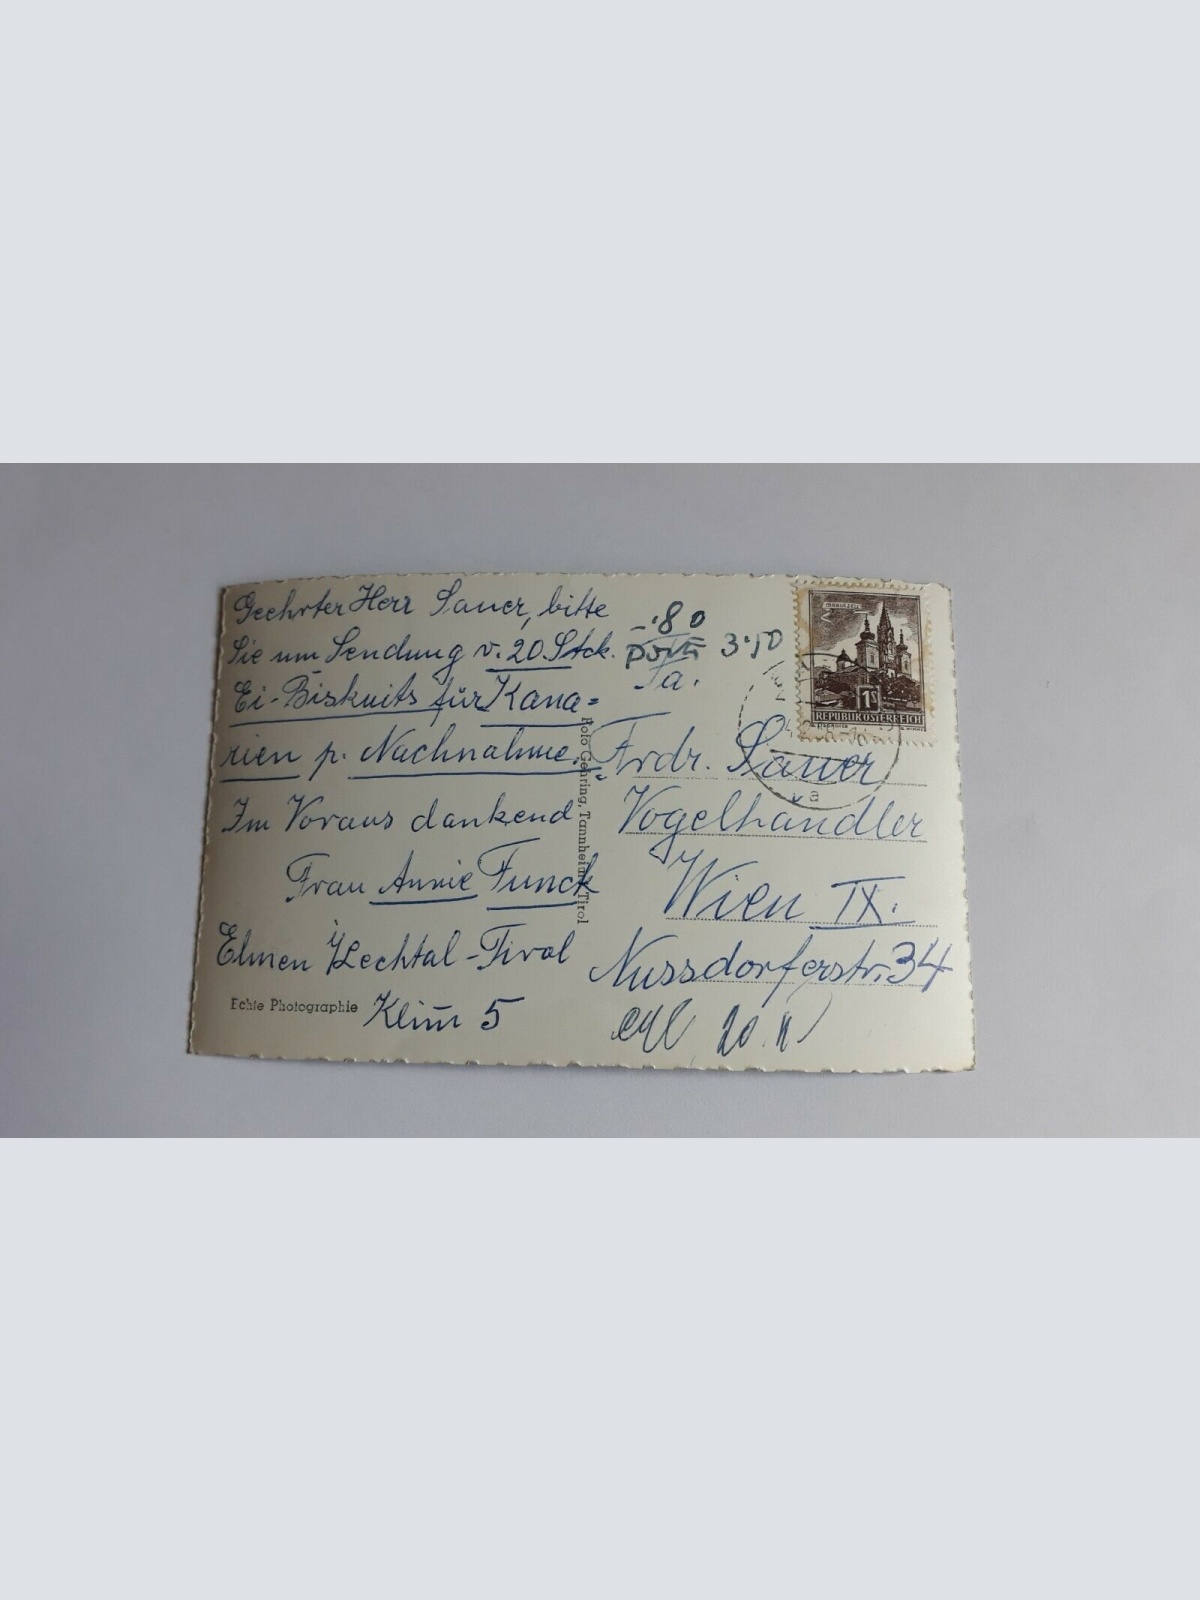 Geehrter Herr Sauer, bitte
Sie um Sendung v. 20. Stck.
Ei-Biskuits für Kana=
rien p. Nachnahme.
Im Voraus dankend
Frau Annie Funck
Elmen i/Lechtal-Tirol
Klim̄ 5
Echte Photographie
Foto Gehring, Tannheim, Tirol
-.80
porto 3.50
Fa.
Frdr. Sauer
Vogelhandler
Wien IX.
Nussdorferstr. 34
20. II
MARIAZELL
1S
REPUBLIK ÖSTERREICH
a